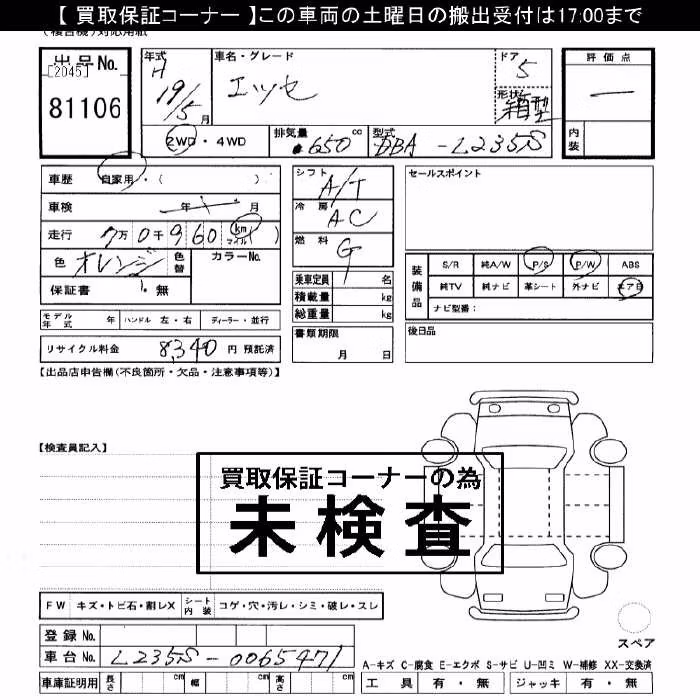 【 買取保証コーナー 】この車両の土曜日の搬出受付は17:00まで
(複合機)対応用紙
出品No.
[2045]
81106
年式
H 19/5 月
車名・グレード
エッセ
ドア
5
形状
箱型
評価点
―
内装
2WD・4WD
排気量
.650 cc
型式
DBA-L235S
車歴 自家用・( )
車検 年 月
走行 7万0千960 km マイル( )
色 オレンジ 色替 カラーNo.
保証書 ・無
シフト A/T
冷房 AC
燃料 G
乗車定員 名
積載量 kg
総重量 kg
書類期限
月 日
セールスポイント
装備品
S/R 純A/W P/S P/W ABS
純TV 純ナビ 革シート 外ナビ エアB
ナビ型番:
後日品
モデル年式 年 ハンドル 左・右 ディーラー・並行
リサイクル料金 8,340 円 預託済
【出品店申告欄(不良箇所・欠品・注意事項等)】
【検査員記入】
買取保証コーナーの為
未検査
FW キズ・トビ石・割レX シート内装 コゲ・穴・汚レ・シミ・破レ・スレ
登録 No.
車台 No. L235S-0065471
車庫証明用 長さ cm 幅 cm 高さ cm
スペア
A-キズ C-腐食 E-エクボ S-サビ U-凹ミ W-補修 XX-交換済
工具 有・無 ジャッキ 有・無